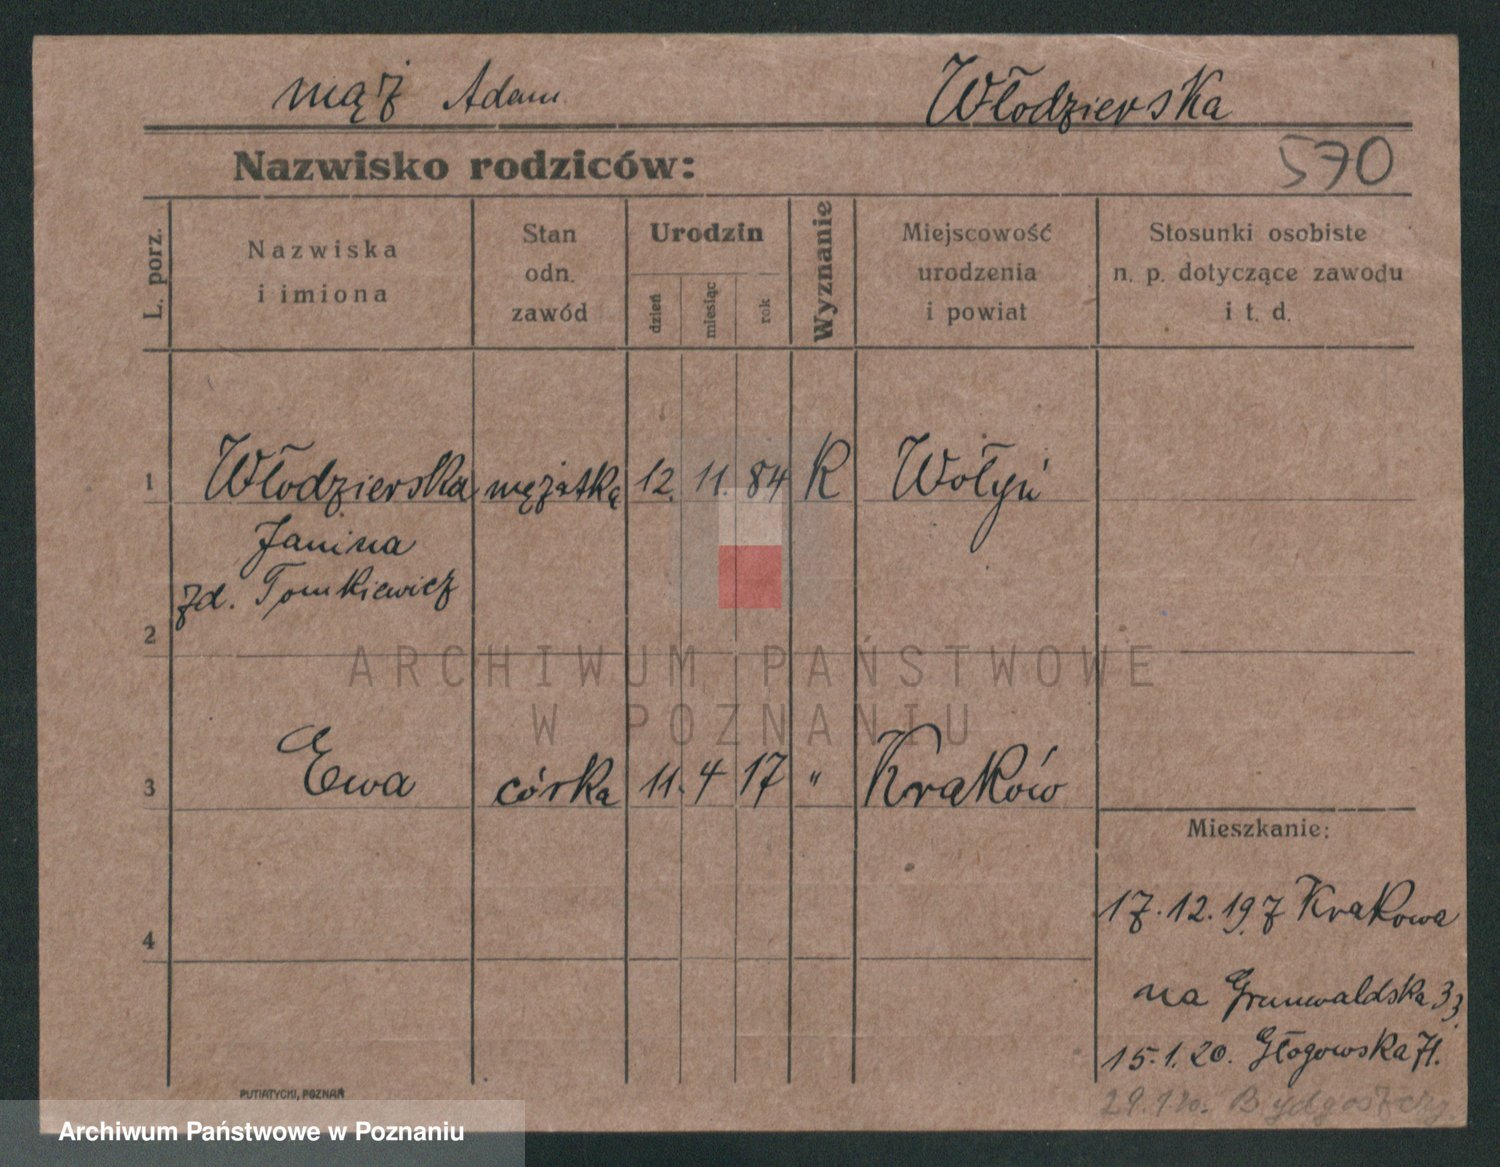 mąż Adam Włodzierska
Nazwisko rodziców: 570
L. porz.
Nazwiska
i imiona
Stan
odn.
zawód
Urodzin
dzień miesiąc rok
Wyznanie
Miejscowość
urodzenia
i powiat
Stosunki osobiste
n. p. dotyczące zawodu
i t. d.
1 Włodzierska mężatka 12. 11. 84 K Wołyń
Janina
zd. Tomkiewicz
2
ARCHIWUM PAŃSTWOWE
W POZNANIU
3 Ewa córka 11. 4 17 " Kraków
Mieszkanie:
4
17.12.19 z Krakowa
na Grunwaldska 33
15.1.20. Głogowska 71.
Bydgoszczy
PUTIATYCKI, POZNAŃ
Archiwum Państwowe w Poznaniu